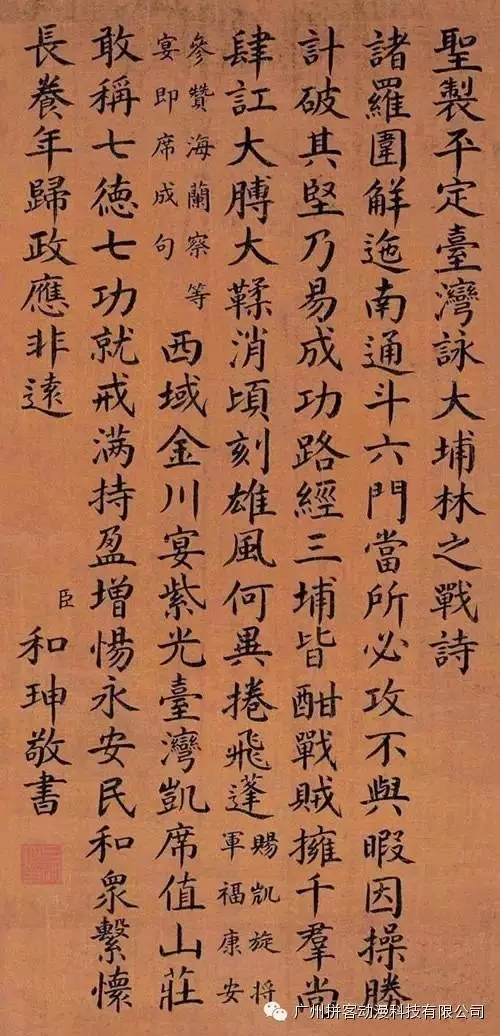 聖製平定臺灣詠大埔林之戰詩
諸羅圍解迤南通斗六門當所必攻不與暇因操勝
計破其堅乃易成功路經三埔皆酣戰賊擁千羣尚
肆訌大膊大鞣消頃刻雄風何異捲飛蓬
賜凱旋将
軍福康安
參贊海蘭察等
宴即席成句
西域金川宴紫光臺灣凱席值山莊
敢稱七德七功就戒满持盈增惕永安民和衆繫懷
長養年歸政應非遠
臣和珅敬書
广州拼客动漫科技有限公司